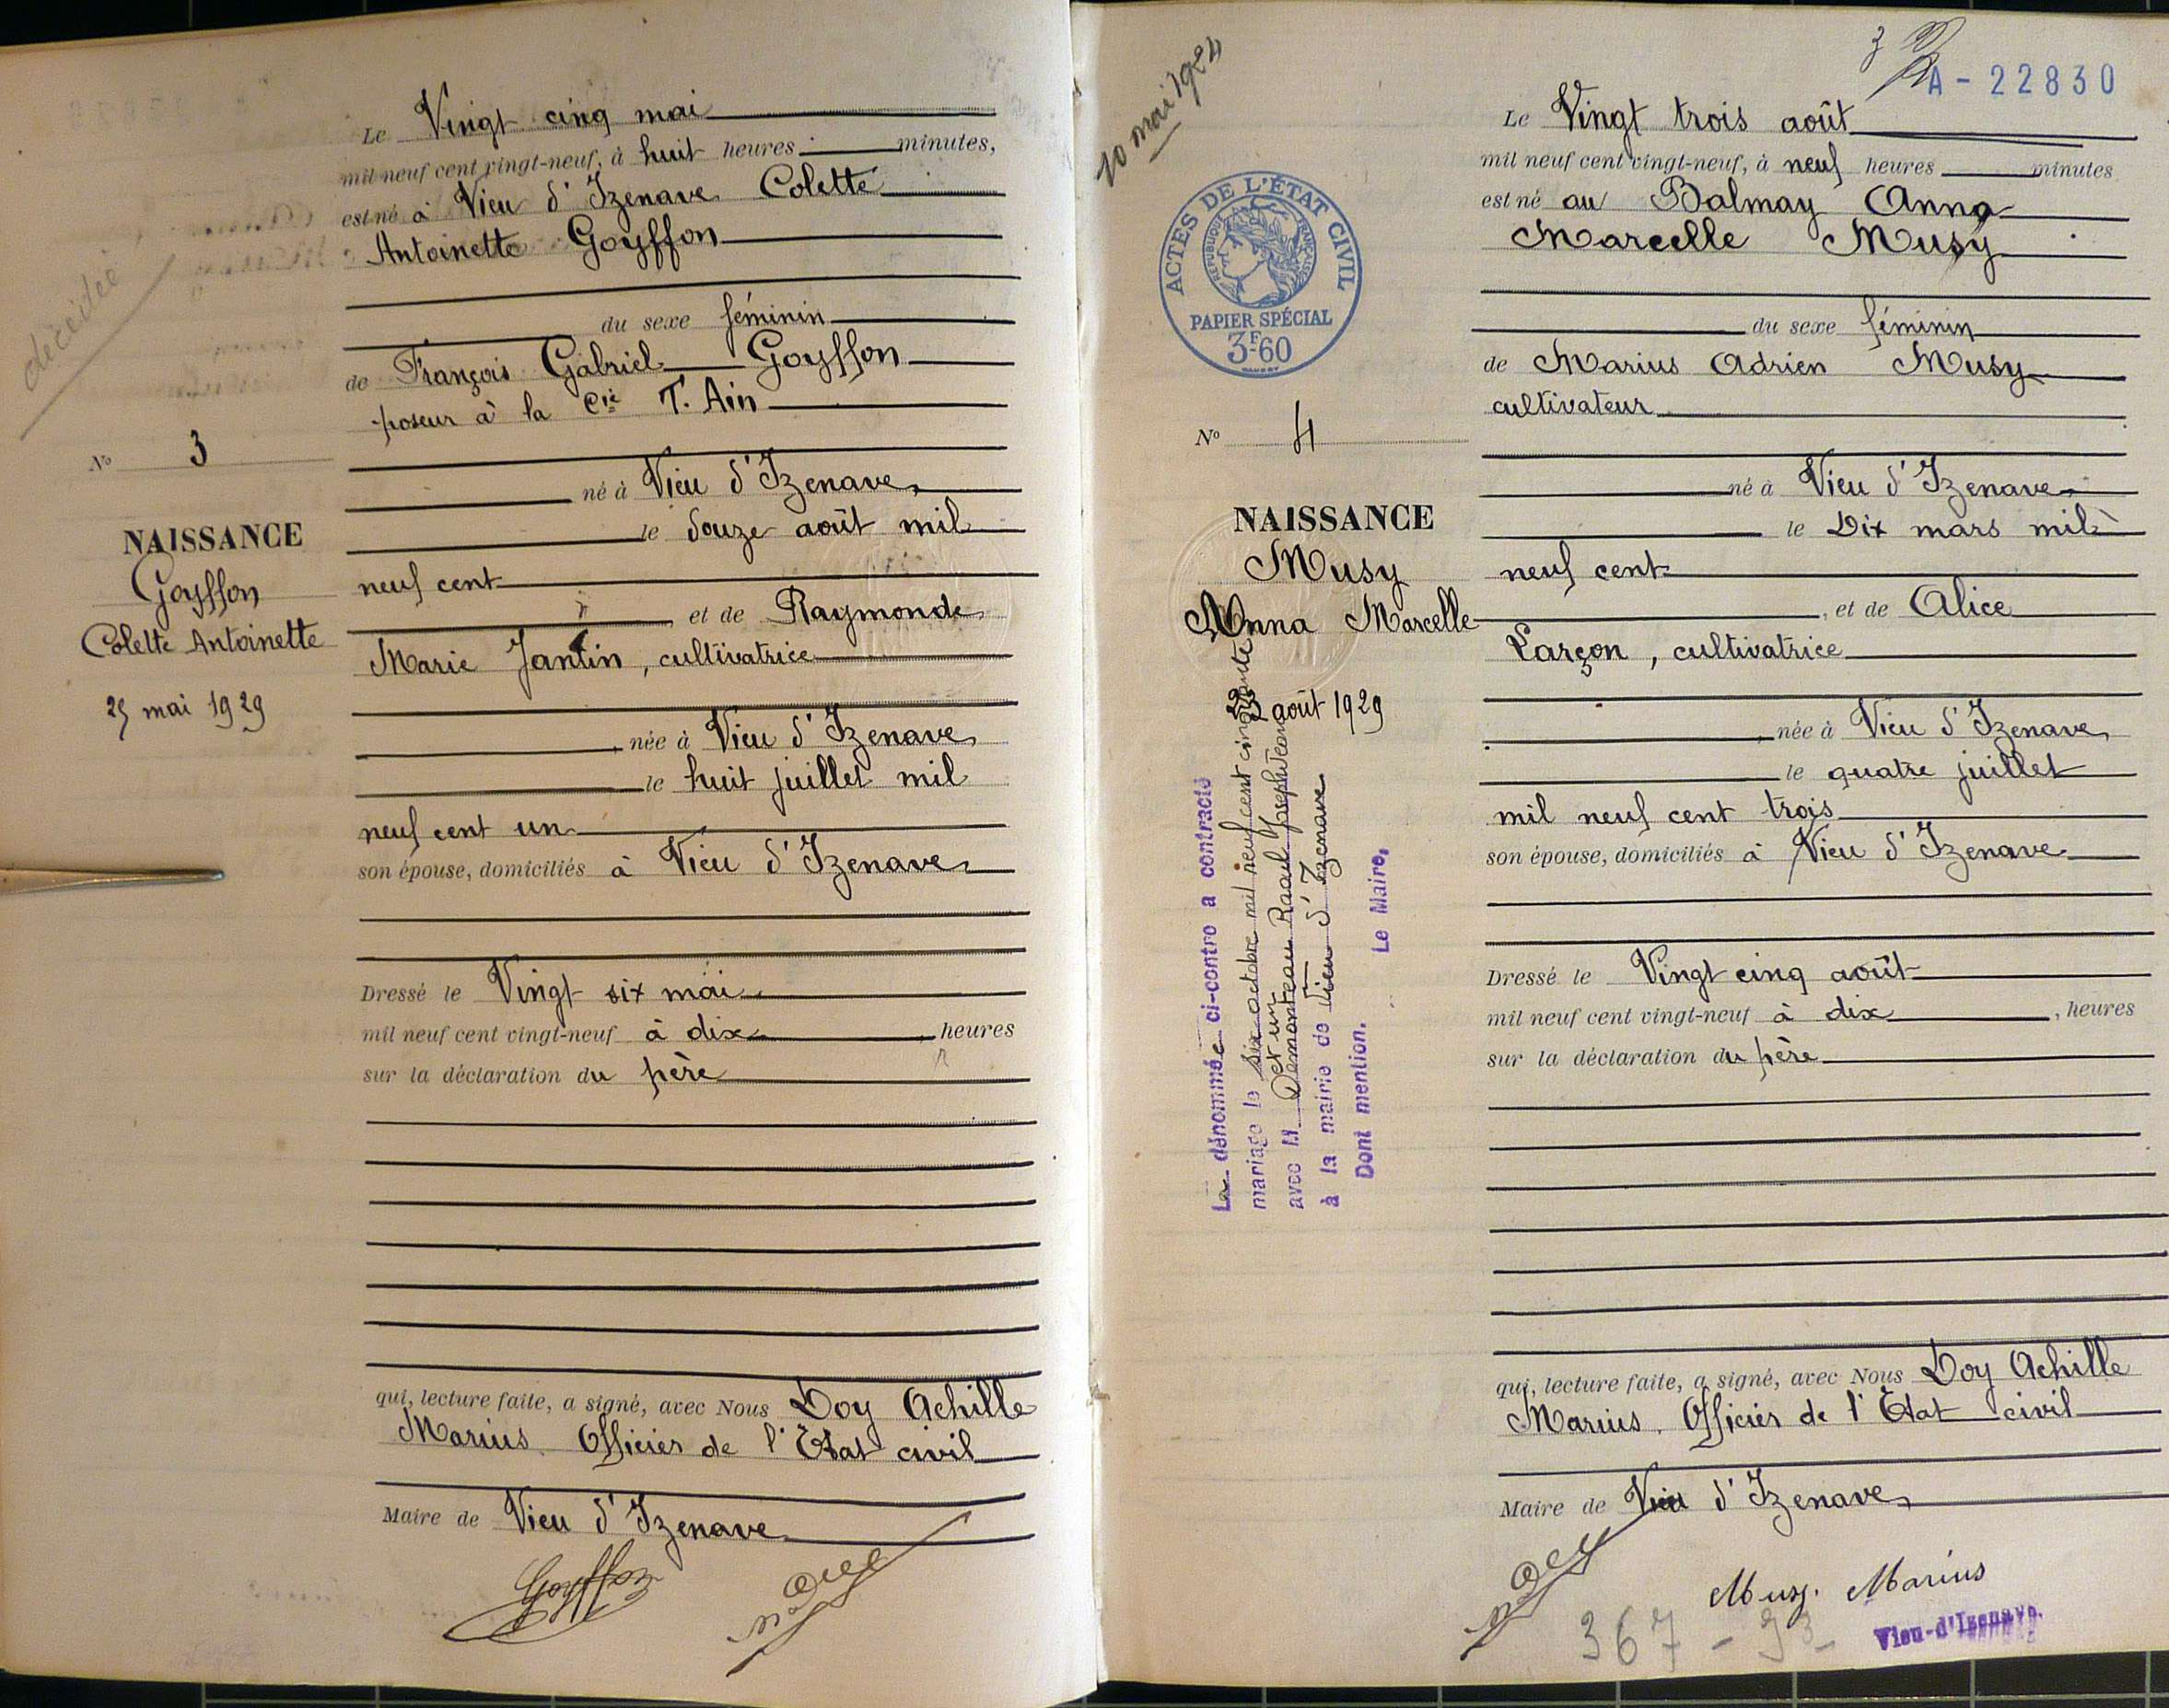 décédée
N° 3
NAISSANCE
Goyffon
Colette Antoinette
25 mai 1929
Le Vingt cinq mai
mil neuf cent vingt-neuf, à huit heures minutes,
est né à Vieu d'Izenave Colette
Antoinette Goyffon
du sexe féminin
de François Gabriel Goyffon
poseur à la Cie T. Ain
né à Vieu d'Izenave
le douze août mil
neuf cent
, et de Raymonde
Marie Jantin, cultivatrice
, née à Vieu d'Izenave
le huit juillet mil
neuf cent un
son épouse, domiciliés à Vieu d'Izenave
Dressé le Vingt six mai
mil neuf cent vingt-neuf à dix , heures
sur la déclaration du père
qui, lecture faite, a signé, avec Nous Doy Achille
Marius Officier de l'Etat civil
Maire de Vieu d'Izenave
Goyffon
10 mai 1924
ACTES DE L'ÉTAT CIVIL
RÉPUBLIQUE FRANÇAISE
PAPIER SPÉCIAL
3F60
N° 4
NAISSANCE
Musy
Anna Marcelle
23 août 1929
La dénommée ci-contre a contracté
mariage le six octobre mil neuf cent cinquante
et un
avec M Demonteau Raoul Joseph Jean
à la mairie de Vieu d'Izenave
Dont mention. Le Maire,
3
A-22830
Le Vingt trois août
mil neuf cent vingt-neuf, à neuf heures minutes
est né au Balmay Anna
Marcelle Musy
du sexe féminin
de Marius Adrien Musy
cultivateur
né à Vieu d'Izenave
le Dix mars mil
neuf cent
, et de Alice
Larçon, cultivatrice
, née à Vieu d'Izenave
le quatre juillet
mil neuf cent trois
son épouse, domiciliés à Vieu d'Izenave
Dressé le Vingt cinq août
mil neuf cent vingt-neuf à dix , heures
sur la déclaration du père
qui, lecture faite, a signé, avec Nous Doy Achille
Marius. Officier de l'Etat civil
Maire de Vieu d'Izenave
Musy. Marius
367 - 93 -
Vieu-d'Izenave.